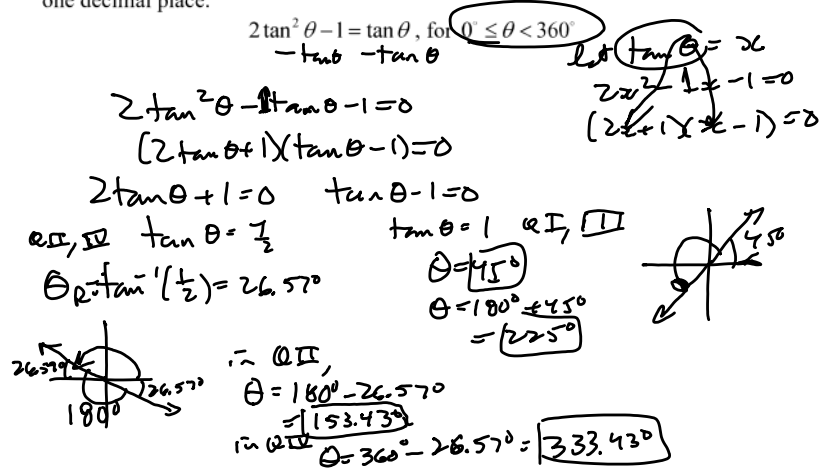 one decimal place.
2 tan² θ − 1 = tan θ , for 0° ≤ θ < 360°
− tanθ − tan θ
let tan θ = x
2x² − 1x − 1 = 0
(2x + 1)(x − 1) = 0
2tan²θ − 1tan θ − 1 = 0
(2tan θ + 1)(tan θ − 1) = 0
2tan θ + 1 = 0 tan θ − 1 = 0
QII, IV tan θ = -1/2
tan θ = 1 QI, III
θR = tan⁻¹(1/2) = 26.57°
θ = 45°
θ = 180° + 45°
= 225°
45°
26.57°
26.57°
180°
in QII,
θ = 180° − 26.57°
= 153.43°
in QIV
θ = 360° − 26.57° = 333.43°